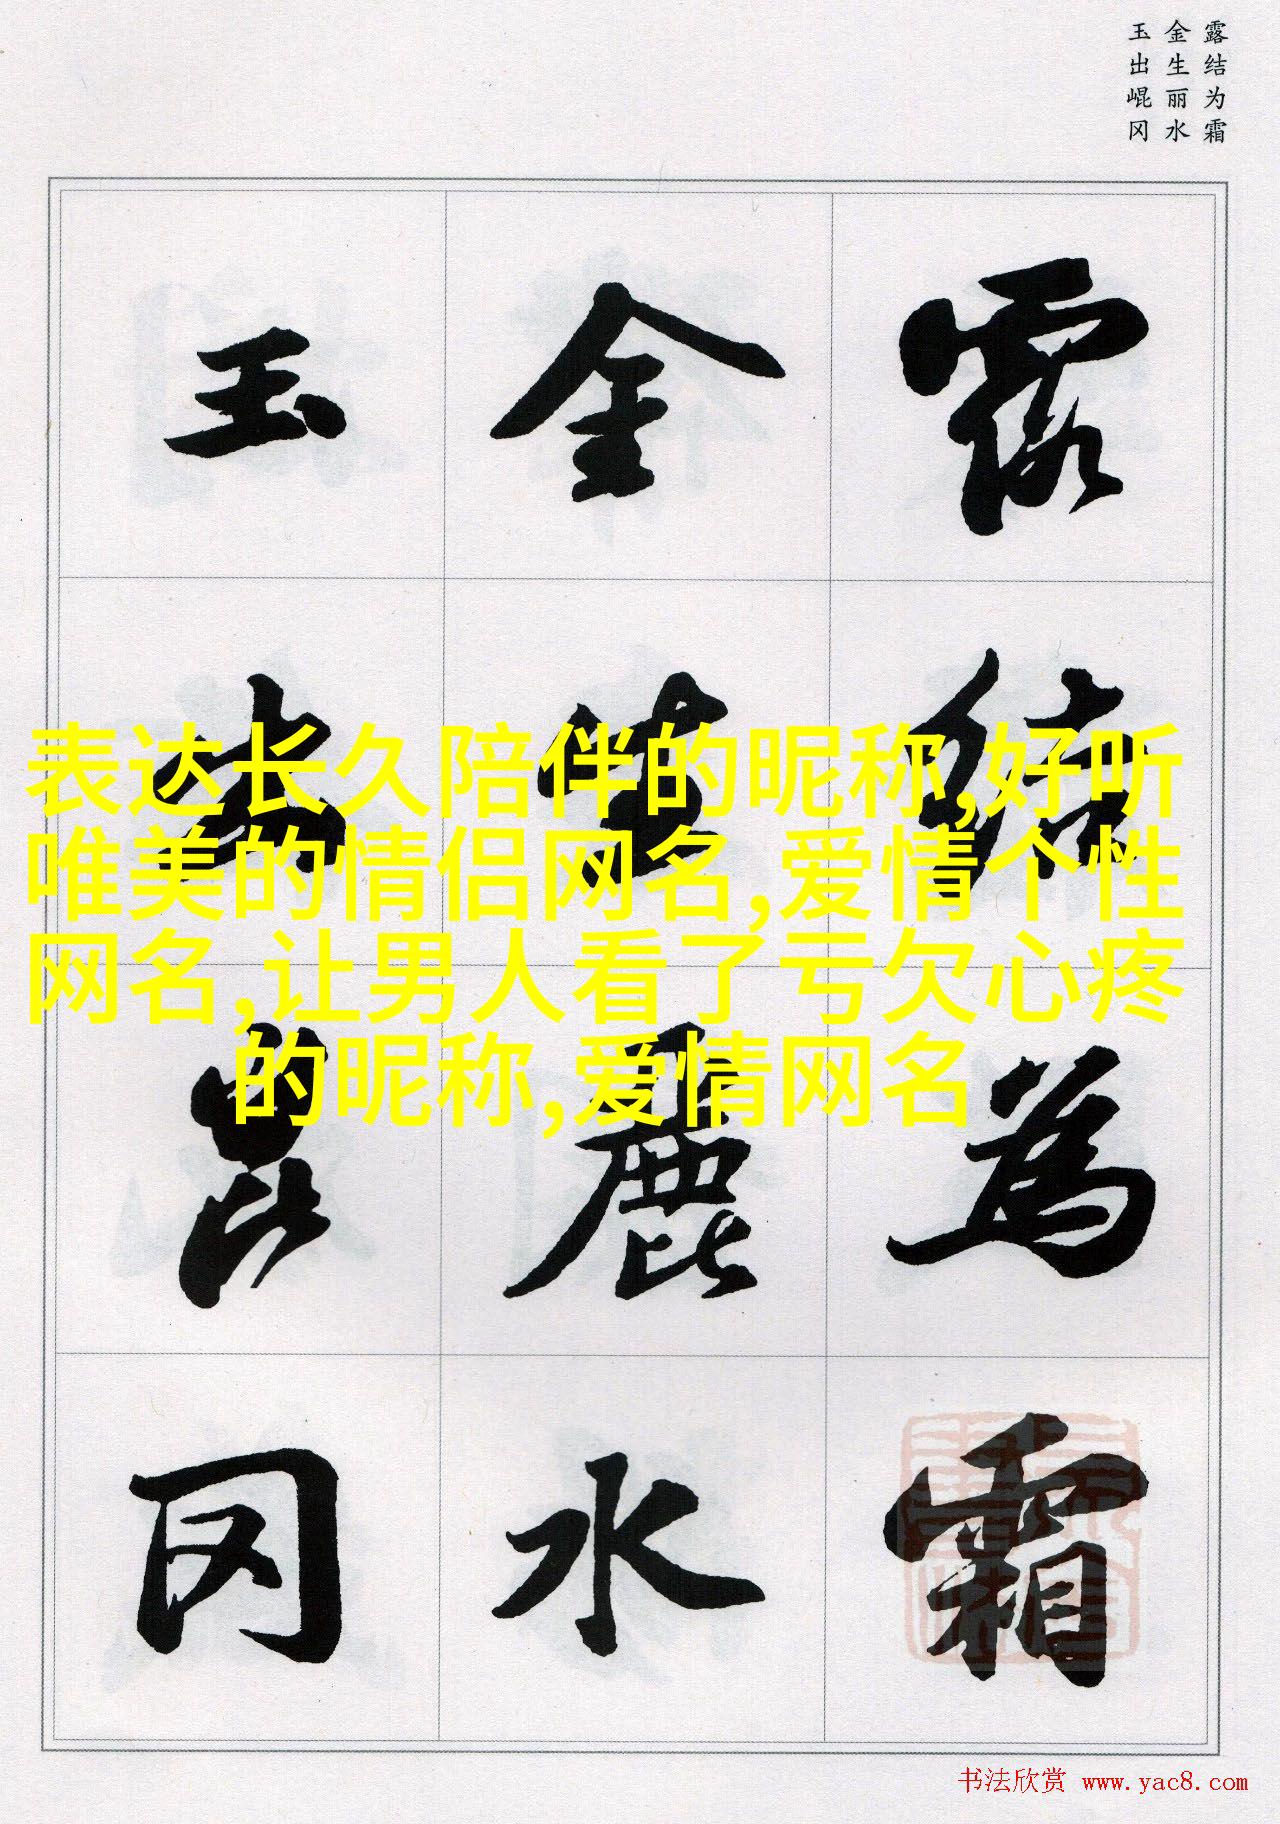 露结为霜
金生丽水
玉出崐冈
露结为霜
金生麗水
玉出崑冈
表达长久陪伴的昵称,好听
唯美的情侣网名,爱情个性
网名,让男人看了亏欠心疼
的昵称,爱情网名
书法欣赏 www.yac8.com